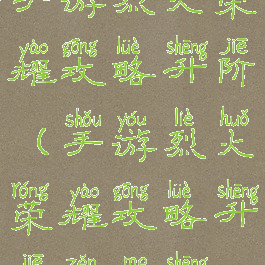 手游烈火荣
yào gōng lüè shēng jiē
耀攻略升阶
shǒu yóu liè huǒ
（手游烈火
róng yào gōng lüè shēng
荣耀攻略升
jiē zěn me shēng